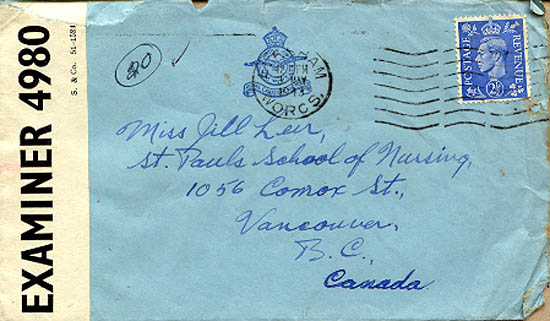 EXAMINER 4980
S. & Co. 51-1581
20
WORCS.
POSTAGE
REVENUE
2½D
Miss Jill Leir,
St. Pauls School of Nursing,
1056 Comox St.,
Vancouver,
B.C.,
Canada.